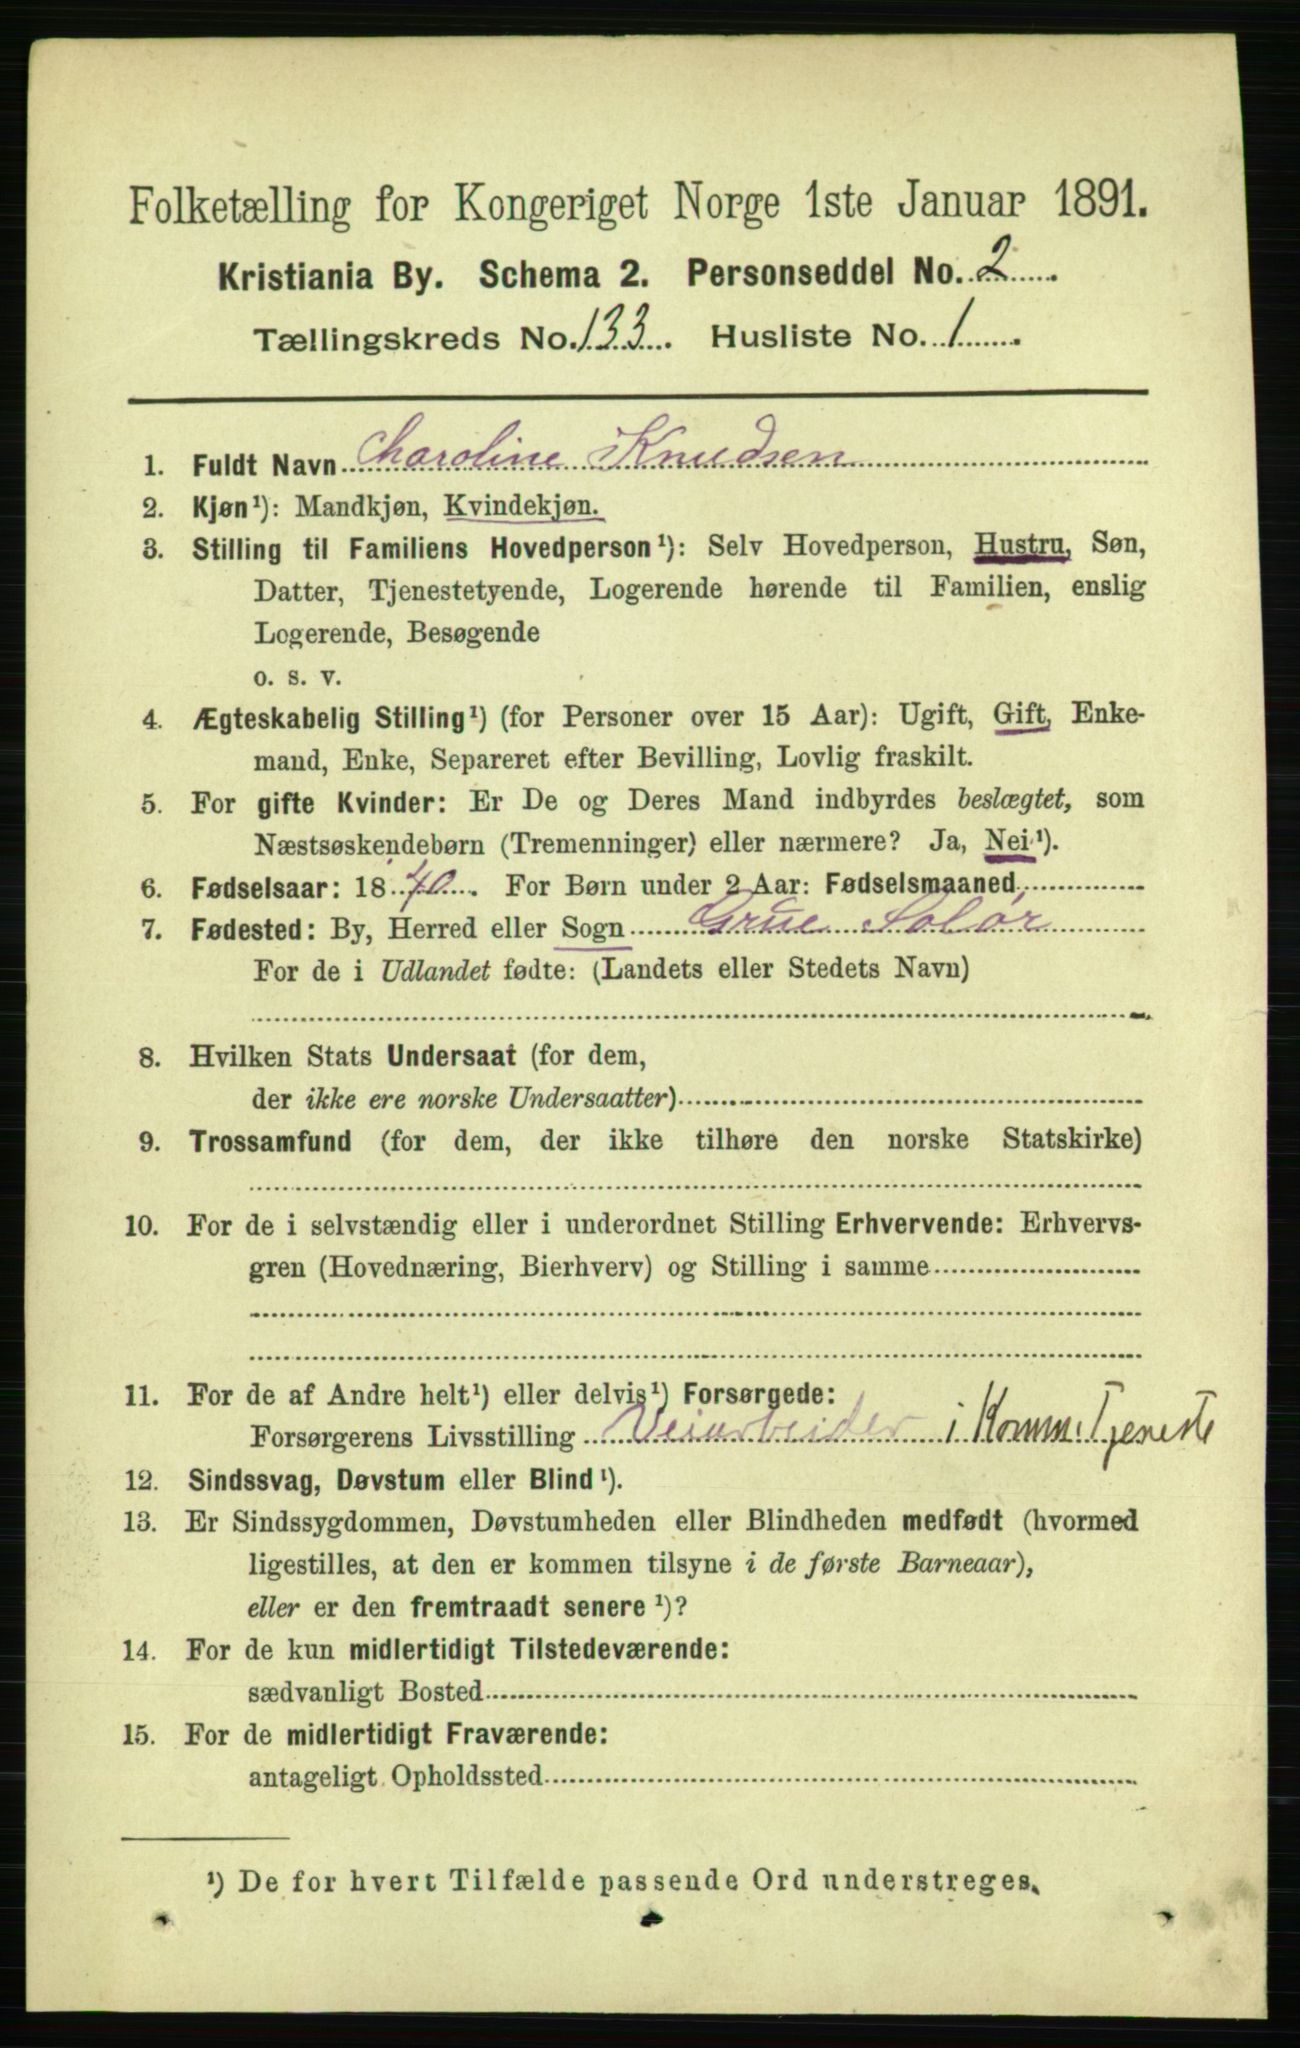 Folketælling for Kongeriget Norge 1ste Januar 1891.
Kristiania By. Schema 2. Personseddel No. 2
Tællingskreds No. 133. Husliste No. 1
1. Fuldt Navn Charoline Knudsen
2. Kjøn¹): Mandkjøn, Kvindekjøn.
3. Stilling til Familiens Hovedperson¹): Selv Hovedperson, Hustru, Søn,
Datter, Tjenestetyende, Logerende hørende til Familien, enslig
Logerende, Besøgende
o. s. v.
4. Ægteskabelig Stilling¹) (for Personer over 15 Aar): Ugift, Gift, Enke-
mand, Enke, Separeret efter Bevilling, Lovlig fraskilt.
5. For gifte Kvinder: Er De og Deres Mand indbyrdes beslægtet, som
Næstsøskendebørn (Tremenninger) eller nærmere? Ja, Nei¹).
6. Fødselsaar: 1840. For Børn under 2 Aar: Fødselsmaaned
7. Fødested: By, Herred eller Sogn Grue Solør
For de i Udlandet fødte: (Landets eller Stedets Navn)
8. Hvilken Stats Undersaat (for dem,
der ikke ere norske Undersaatter)
9. Trossamfund (for dem, der ikke tilhøre den norske Statskirke)
10. For de i selvstændig eller i underordnet Stilling Erhvervende: Erhvervs-
gren (Hovednæring, Bierhverv) og Stilling i samme
11. For de af Andre helt¹) eller delvis¹) Forsørgede:
Forsørgerens Livsstilling Veiarbeider i Komm. Tjeneste
12. Sindssvag, Døvstum eller Blind¹).
13. Er Sindssygdommen, Døvstumheden eller Blindheden medfødt (hvormed
ligestilles, at den er kommen tilsyne i de første Barneaar),
eller er den fremtraadt senere¹)?
14. For de kun midlertidigt Tilstedeværende:
sædvanligt Bosted
15. For de midlertidigt Fraværende:
antageligt Opholdssted
¹) De for hvert Tilfælde passende Ord understreges.